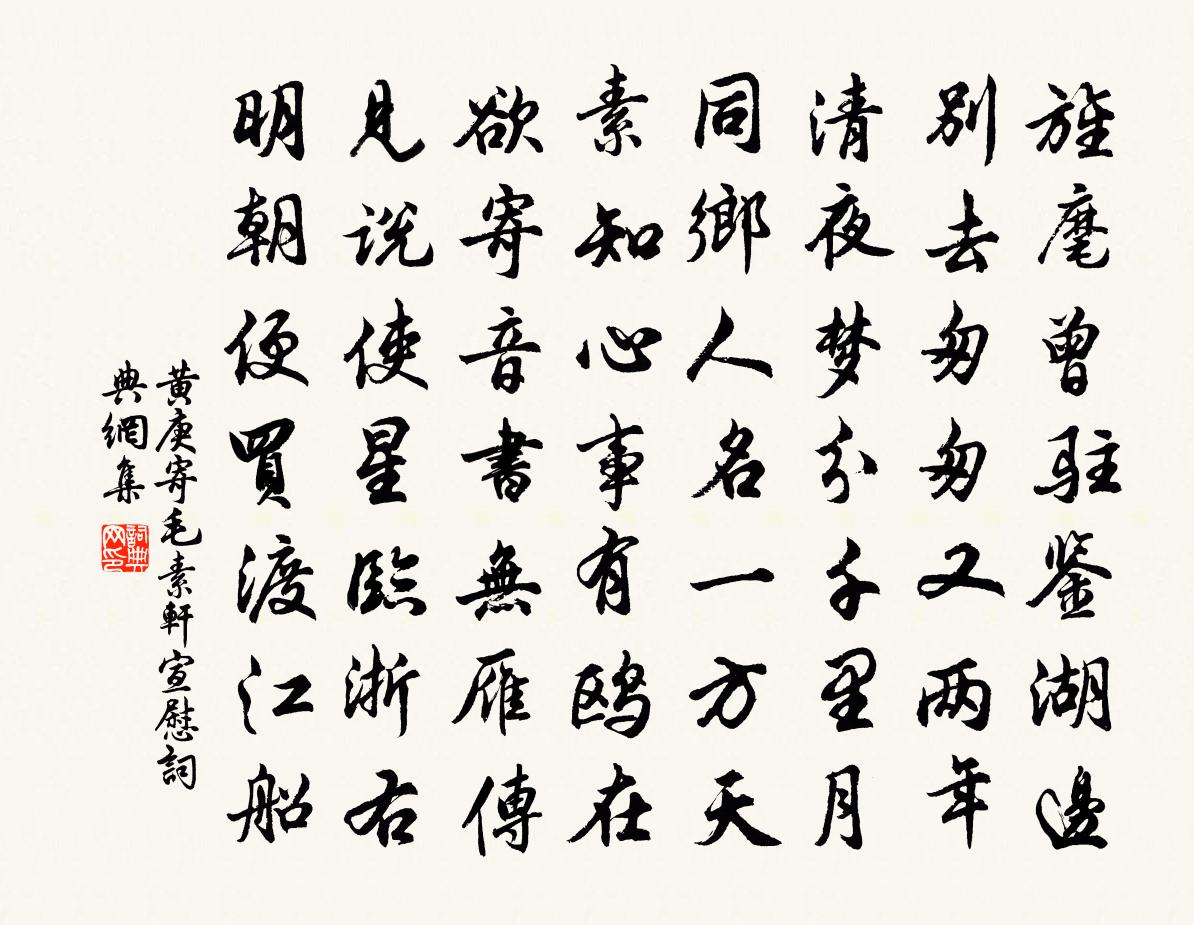 旌麾曾駐鉴湖邊
別去匆匆又两年
清夜梦分千里月
同鄉人名一方天
素知心事有鸥在
欲寄音書無雁傳
見说使星臨浙右
明朝便買渡江船
黃庚寄毛素軒宣慰詞
典網集
詞典
网印